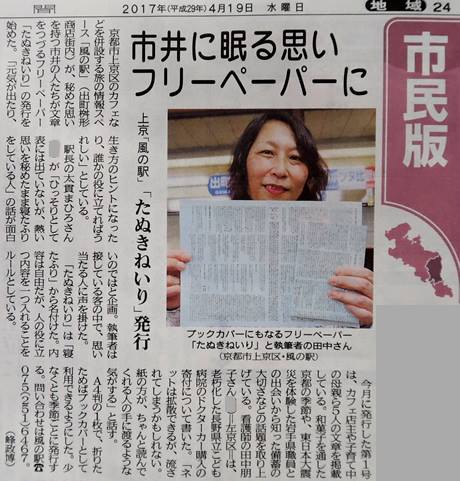 聞
2017年(平成29年)4月19日 水曜日
地域 24
市民版
市井に眠る思い
フリーペーパーに
上京「風の駅」
「たぬきねいり」発行
京都市上京区のカフェな
どを併設する旅の情報スペ
ース「風の駅」(出町桝形
商店街内)が、秘めた思い
を持つ市井の人たちが文章
をつづるフリーペーパー
「たぬきねいり」の発行を
始めた。「元気が出たり、
生き方のヒントになった
り、誰かの役に立てればう
れしい」としている。
駅長の大貫まひろさん
が「ひっそりとして
表には出ていないが、熱い
思いを秘めたまま寝たふり
をしている人」の話が面白
いのではと企画。執筆者は
接している客の中で、思い
当たる人に声を掛けた。
「たぬきねいり」は「寝
たふり」から名付けた。内
容は自由だが、人の役に立
つ内容を一つ入れることを
ルールとしている。
ブックカバーにもなるフリーペーパー
「たぬきねいり」と執筆者の田中さん
(京都市上京区・風の駅)
今月に発行した第1号
は、カフェ店主や子育て中
の母親ら5人の文章を掲載
している。和菓子を通した
京都の季節や、東日本大震
災を体験した岩手県職員と
の出会いから知った備蓄の
大切さなどの話題を取り上
げている。看護師の田中朋
子さん
=左京区=は、
老朽化した長野県立こども
病院のドクターカー購入の
寄付について書いた。「ネ
ットは拡散できるが、流さ
れてしまうかもしれない。
紙の方が、ちゃんと読んで
くれる人の手に渡るような
気がする」と話す。
A4判の1枚で、折りた
ためばブックカバーとして
利用できるようにした。少
なくとも季節ごとに発行す
る。問い合わせは風の駅☎
075(251)6467。
(峰政博)